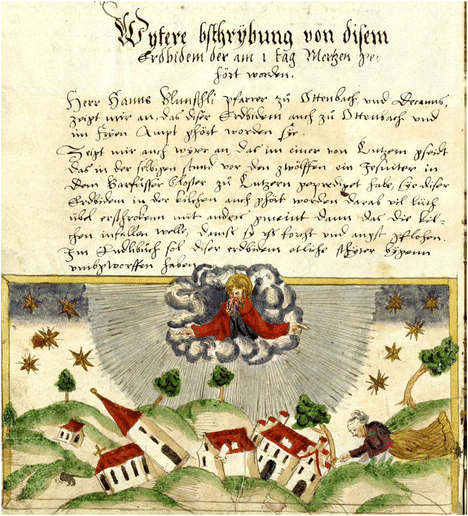 Wytere bschrybung von disem
Erdbidem der am 1 tag Mertzen ge-
hört worden.
Herr Hanns Wunschli pfarrer zů Ottenbach und Decanus,
zeigt mir an, das diser Erdbidem auch zů Ottenbach und
im Fryen Ampt ghört worden sye.
Zeigt mir auch wyter an, das im einer von Lutzern gseidt
das in der selbigen stund vor den zwölffen ein Jesuiter in
dem Barfüsser Closter zů Lutzern geprediget habe, sye diser
Erdbidem in der kilchen auch ghört worden, darab vil lüth
übel erschrocken und anders gmeint dann das die kil-
chen infallen welle, damit sy uss forcht und angst gflohen.
Im Endlibůch sol diser erdbidem etliche
umbgworffen haben.